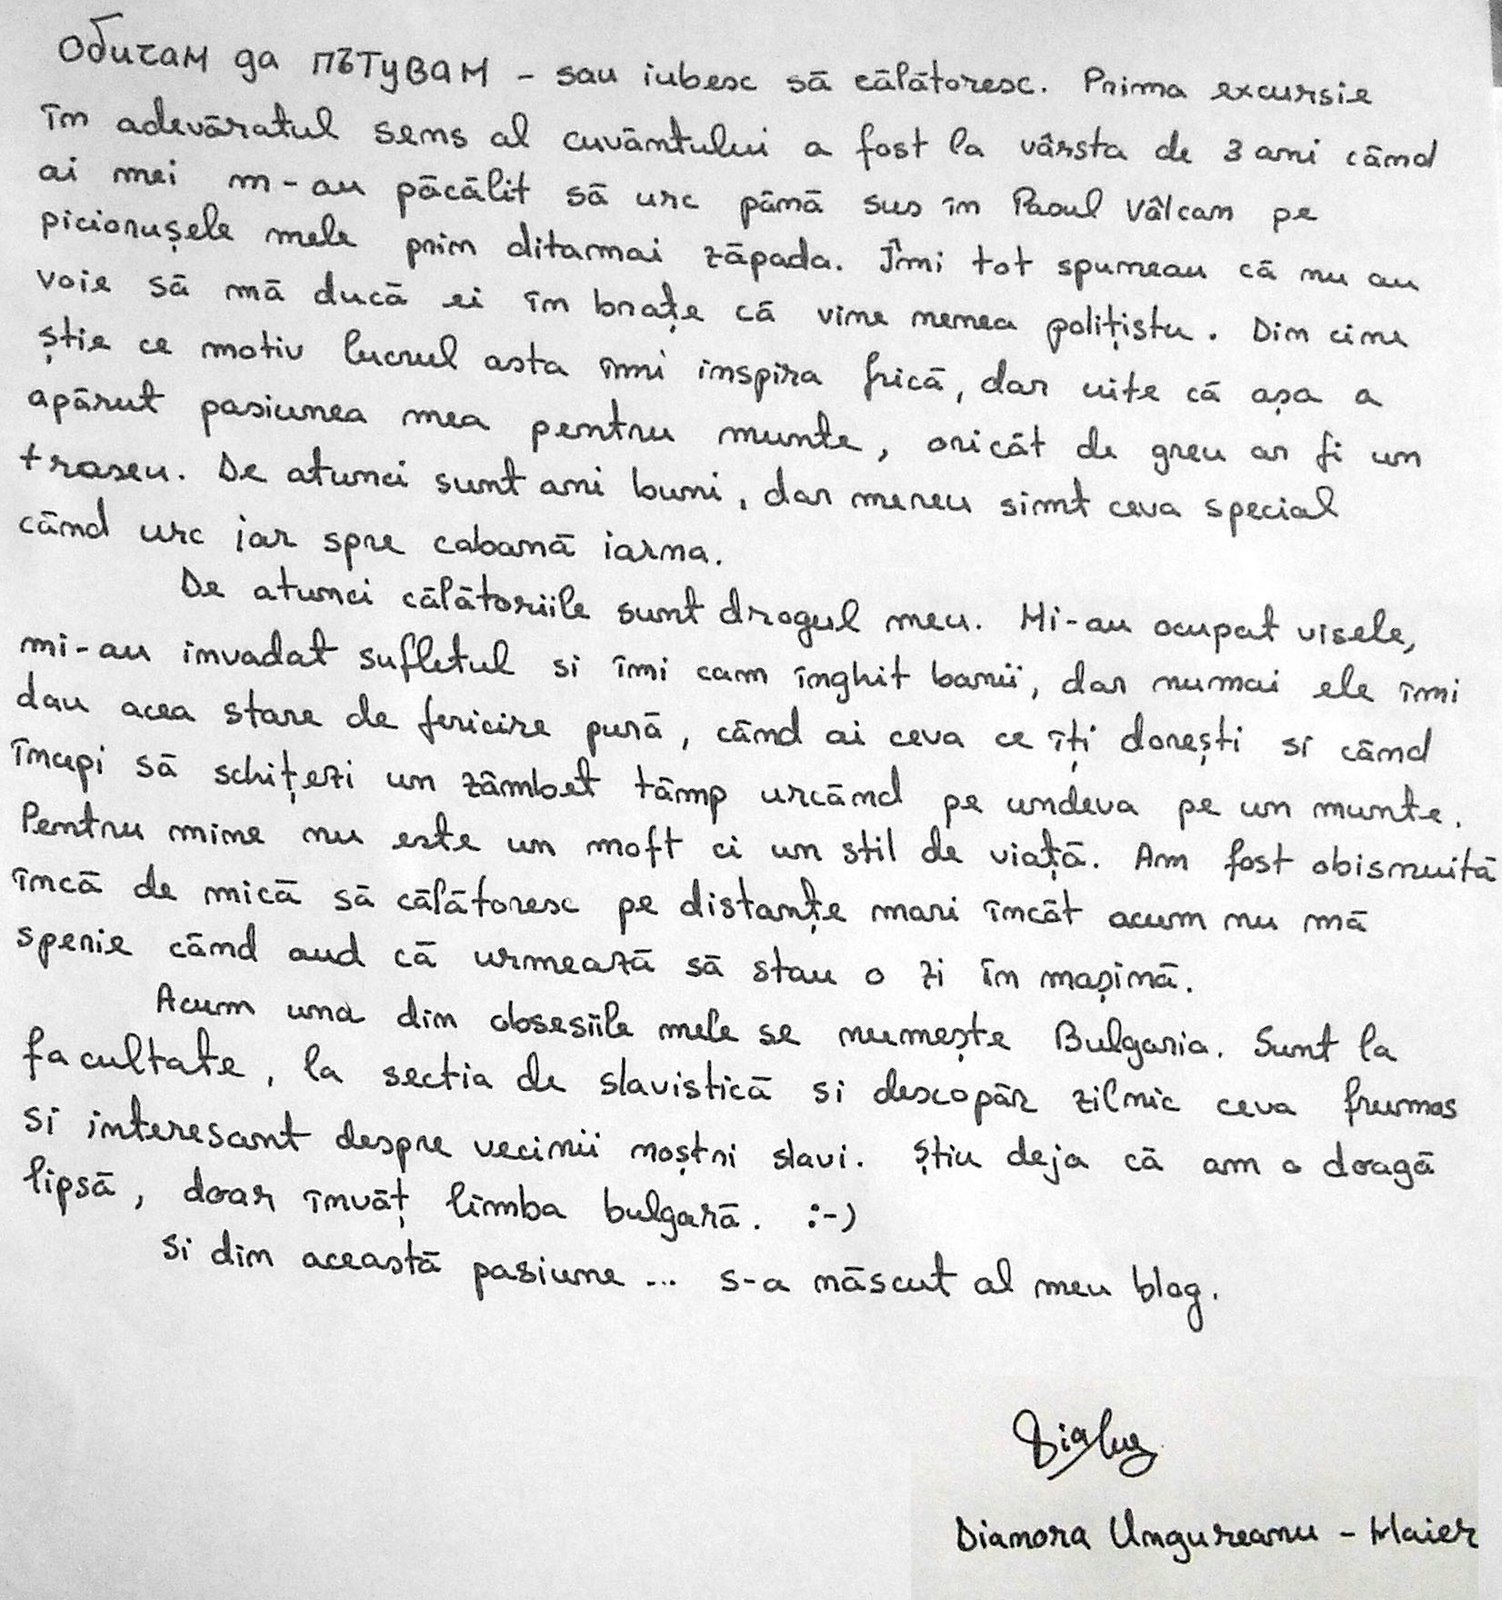 Обичам да пътувам - sau iubesc să călătoresc. Prima excursie
în adevăratul sens al cuvântului a fost la vârsta de 3 ani când
ai mei m-au păcălit să urc până sus în Pasul Vâlcan pe
piciorușele mele prin ditamai zăpada. Îmi tot spuneau că nu au
voie să mă ducă ei în brațe că vine nenea polițistu. Din cine
știe ce motiv lucrul asta îmi inspira frică, dar uite că așa a
apărut pasiunea mea pentru munte, oricât de greu ar fi un
traseu. De atunci sunt ani buni, dar mereu simt ceva special
când urc iar spre cabană iarna.
De atunci călătoriile sunt drogul meu. Mi-au ocupat visele,
mi-au invadat sufletul si îmi cam înghit banii, dar numai ele îmi
dau acea stare de fericire pură, când ai ceva ce îți dorești si când
începi să schițezi un zâmbet tâmp urcând pe undeva pe un munte.
Pentru mine nu este un moft ci un stil de viață. Am fost obisnuită
încă de mică să călătoresc pe distanțe mari încât acum nu mă
sperie când aud că urmează să stau o zi în mașină.
Acum una din obsesiile mele se numește Bulgaria. Sunt la
facultate, la sectia de slavistică si descopăr zilnic ceva frumos
si interesant despre vecinii noștri slavi. Știu deja că am o doagă
lipsă, doar învăț limba bulgară. :-)
Si din această pasiune ... s-a născut al meu blog.
Dianora Ungureanu - Maier